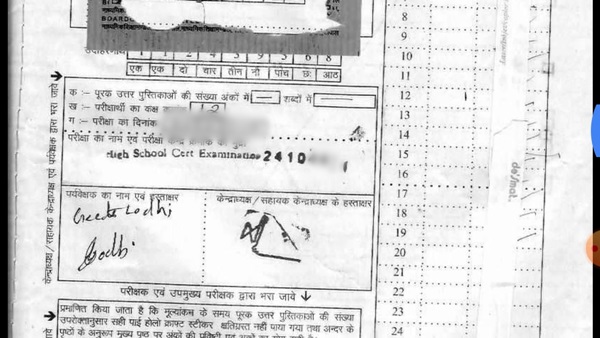 BOARD
उदाहरणार्थ 1 1 2 4 3 9 5 6 8
एक एक दो चार तीन नौ पांच छः आठ
क :- पूरक उत्तर पुस्तिकाओं की संख्या अंकों में शब्दों में
ख :- परीक्षार्थी का कक्ष
ग :- परीक्षा का दिनांक
परीक्षा का नाम एवं परीक्षा
High School Cert Examination 2410
पर्यवेक्षक का नाम एवं हस्ताक्षर
केन्द्राध्यक्ष/सहायक केन्द्राध्यक्ष के हस्ताक्षर
Geeta Lodhi
Lodhi
परीक्षक एवं उपमुख्य परीक्षक द्वारा भरा जाये ↓
प्रमाणित किया जाता है कि मूल्यांकन के समय पूरक उत्तर पुस्तिकाओं की संख्या
उपरोक्तानुसार सही पाई होलो क्राफ्ट स्टीकर क्षतिग्रस्त नहीं पाया गया तथा अन्दर के
पृष्ठों के अनुरूप मुख्य पृष्ठ पर अंकों की
केन्द्राध्यक्ष/सहायक केन्द्राध्यक्ष एवं पर्यवेक्षक द्वारा भरा जावे
8
9
10
11
12
13
14
15
16
17
18
19
20
21
22
23
24